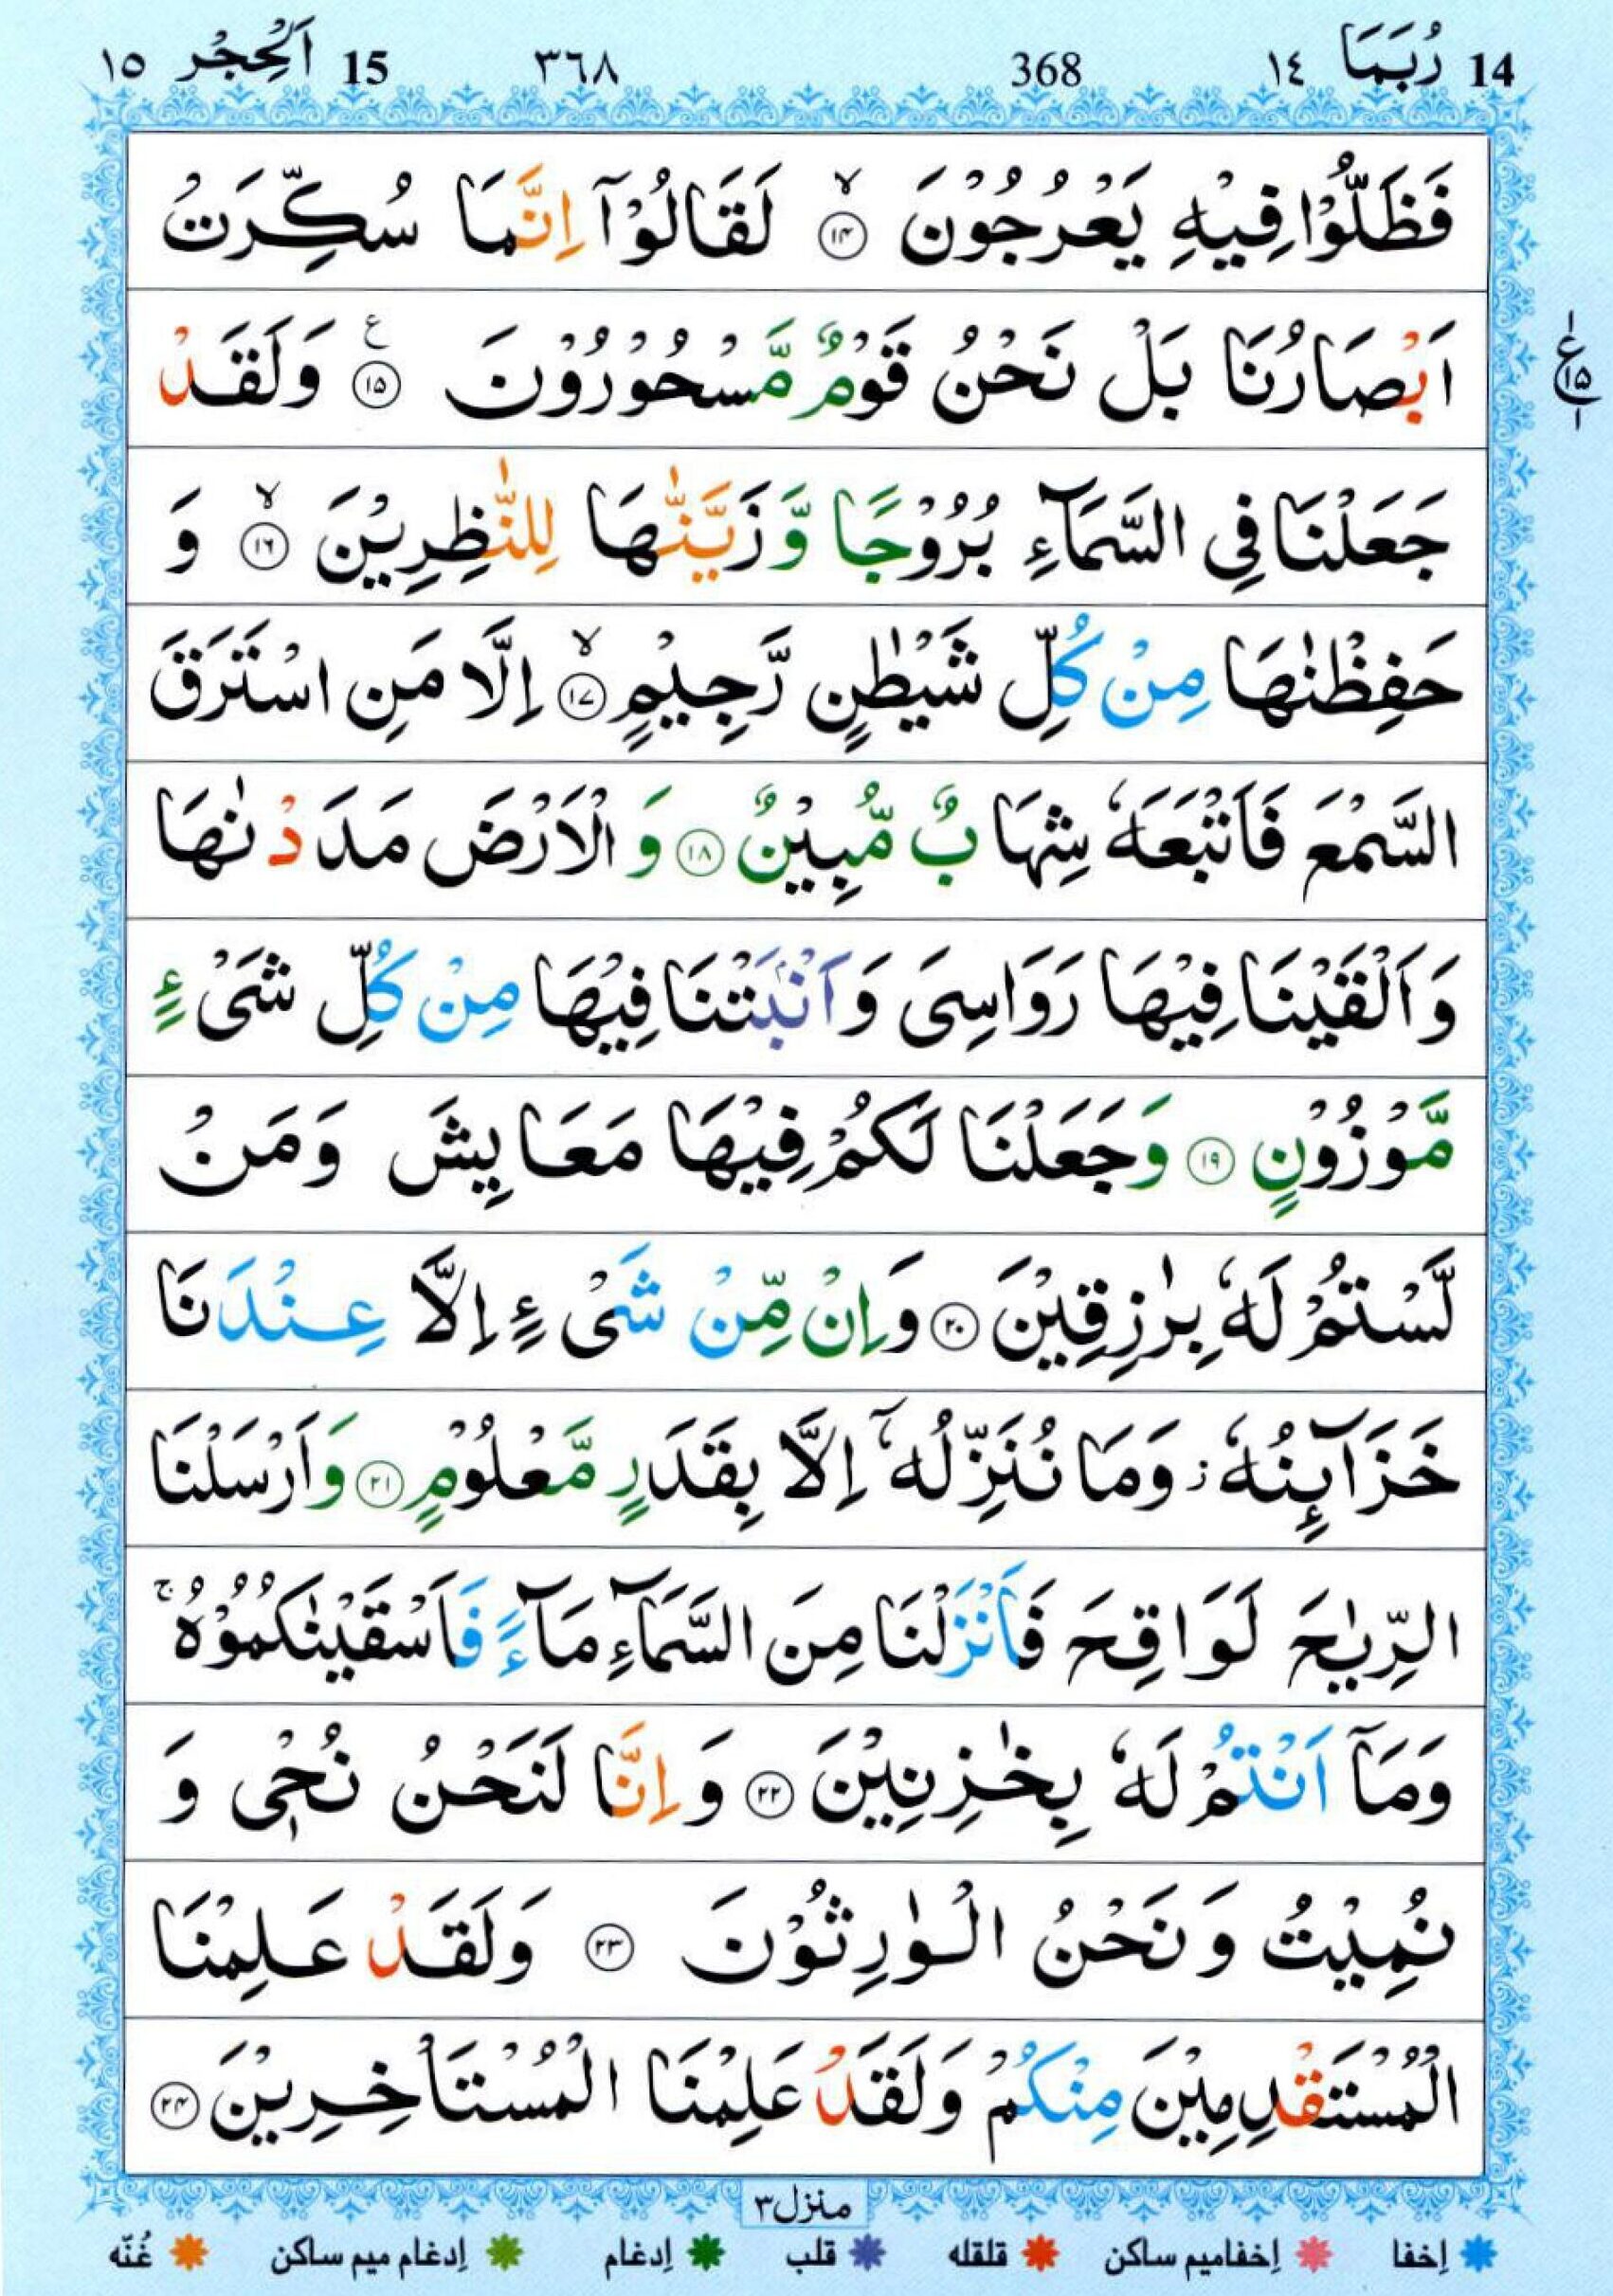 14 رُبَمَا ١٤ 368 ٣٦٨ 15 اَلْحِجْر ١٥
فَظَلُّوْا فِیْهِ یَعْرُجُوْنَ ۙ﴿۱۴﴾ لَقَالُوْۤا اِنَّمَا سُكِّرَتْ
اَبْصَارُنَا بَلْ نَحْنُ قَوْمٌ مَّسْحُوْرُوْنَ ﴿۱۵﴾ ع وَلَقَدْ
ع ۱ ۱۵ ۱
جَعَلْنَا فِی السَّمَآءِ بُرُوْجًا وَّ زَیَّنّٰهَا لِلنّٰظِرِیْنَ ۙ﴿۱۶﴾ وَ
حَفِظْنٰهَا مِنْ كُلِّ شَیْطٰنٍ رَّجِیْمٍ ۙ﴿۱۷﴾ اِلَّا مَنِ اسْتَرَقَ
السَّمْعَ فَاَتْبَعَهٗ شِهَابٌ مُّبِیْنٌ ﴿۱۸﴾ وَ الْاَرْضَ مَدَدْنٰهَا
وَ اَلْقَیْنَا فِیْهَا رَوَاسِیَ وَ اَنْۢبَتْنَا فِیْهَا مِنْ كُلِّ شَیْءٍ
مَّوْزُوْنٍ ﴿۱۹﴾ وَجَعَلْنَا لَكُمْ فِیْهَا مَعَایِشَ وَمَنْ
لَّسْتُمْ لَهٗ بِرٰزِقِیْنَ ﴿۲۰﴾ وَ اِنْ مِّنْ شَیْءٍ اِلَّا عِنْدَنَا
خَزَآىِٕنُهٗ ؗ وَمَا نُنَزِّلُهٗۤ اِلَّا بِقَدَرٍ مَّعْلُوْمٍ ﴿۲۱﴾ وَاَرْسَلْنَا
الرِّیٰحَ لَوَاقِحَ فَاَنْزَلْنَا مِنَ السَّمَآءِ مَآءً فَاَسْقَیْنٰكُمُوْهُ ۚ
وَمَاۤ اَنْتُمْ لَهٗ بِخٰزِنِیْنَ ﴿۲۲﴾ وَ اِنَّا لَنَحْنُ نُحْیٖ وَ
نُمِیْتُ وَ نَحْنُ الْوٰرِثُوْنَ ﴿۲۳﴾ وَلَقَدْ عَلِمْنَا
الْمُسْتَقْدِمِیْنَ مِنْكُمْ وَلَقَدْ عَلِمْنَا الْمُسْتَاْخِرِیْنَ ﴿۲۴﴾
منزل ۳
إخفا إخفا میم ساکن قلقله قلب إدغام إدغام میم ساکن غُنّه